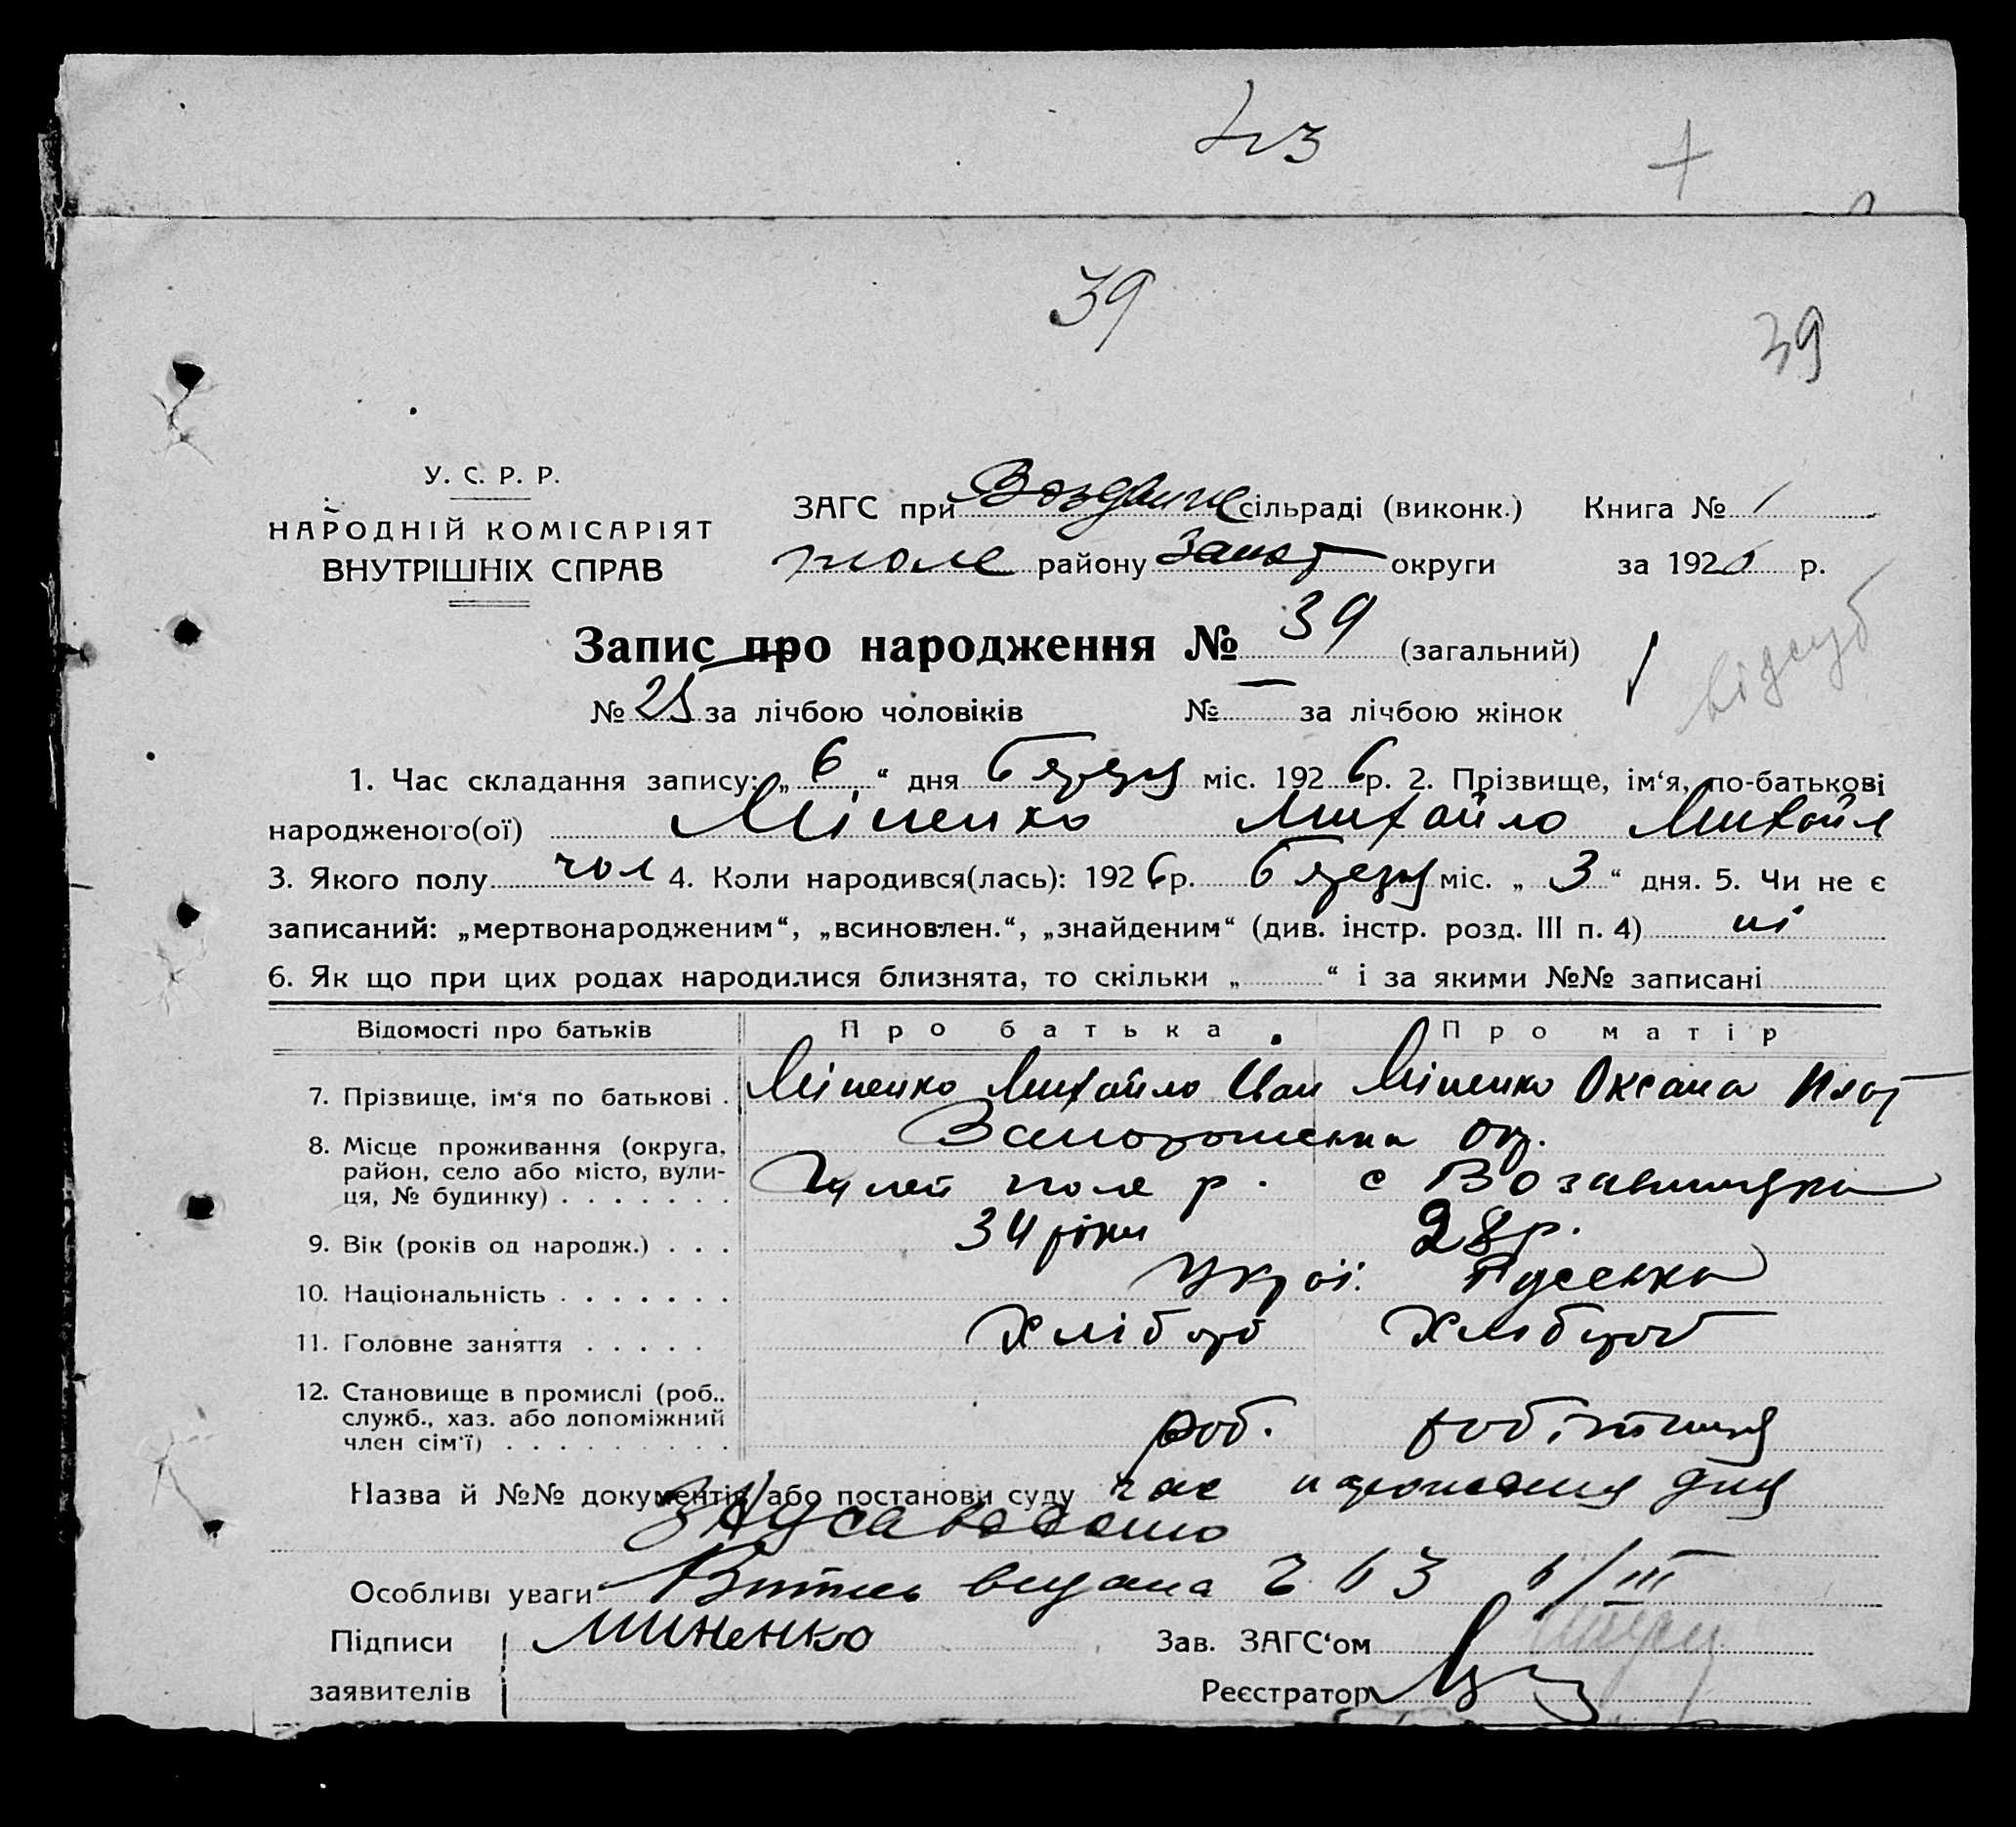 43
+
39
39
У. С. Р. Р.
НАРОДНІЙ КОМІСАРІЯТ
ВНУТРІШНІХ СПРАВ
ЗАГС при Воздвиж сільраді (виконк.) Книга № 1
поле району Запор округи за 1926 р.
Запис про народження № 39 (загальний)
відсут
№ 25 за лічбою чоловіків № — за лічбою жінок
1. Час складання запису: „ 6 “ дня березня міс. 1926 р. 2. Прізвище, ім‘я, по-батькові
народженого(ої) Міненко Михайло Михайл
3. Якого полу чол 4. Коли народився(лась): 1926 р. березня міс. „ 3 “ дня. 5. Чи не є
записаний: „мертвонародженим“, „всиновлен.“, „знайденим“ (див. інстр. розд. III п. 4) ні
6. Як що при цих родах народилися близнята, то скільки „ “ і за якими №№ записані
Відомості про батьків Про батька Про матір
7. Прізвище, ім‘я по батькові . Міненко Михайло Іван Міненко Оксана Плат
8. Місце проживання (округа, район, село або місто, вулиця, № будинку) . . . . . . .
Запорожська окр.
Гуляй поле р. с Воздвишужка
9. Вік (років од народж.) . . . 34 роки 28 р.
10. Національність . . . . . . . Украї.
11. Головне заняття . . . . . Хлібороб Хлібороб
12. Становище в промислі (роб., служб., хаз. або допоміжний член сім‘ї) . . . . . . . . .
роб. робітниця
Назва й №№ документів або постанови суду час народження дня
Особливі уваги Витяг видана 6/III
Підписи заявителів Миненко
Зав. ЗАГС‘ом
Реєстратор